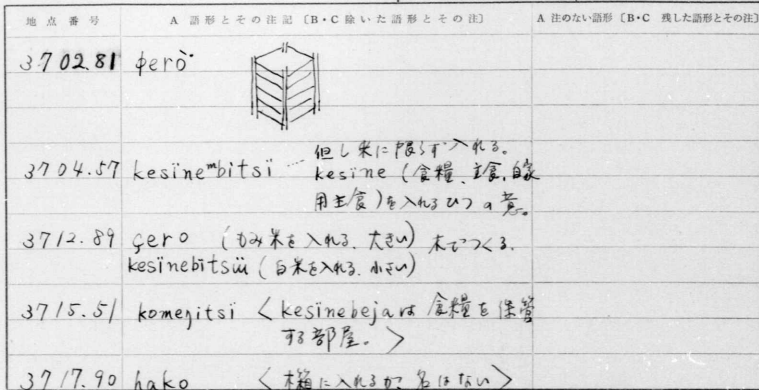 地点番号 A 語形とその注記〔B・C 除いた語形とその注〕 A 注のない語形〔B・C 残した語形とその注〕
3702.81 ɸerò
3704.57 kesïneᵐbitsï ┄ 但し米に限らず入れる。
kesïne (食糧、主食、自家
用主食)を入れるひつの意。
3712.89 çero (もみ米を入れる、大きい) 木でつくる。
kesïnebïtsüï (白米を入れる、小さい)
3715.51 komeɲitsï <kesïnebejaは食糧を保管
する部屋。>
3717.90 hako <木箱に入れるが、名はない>